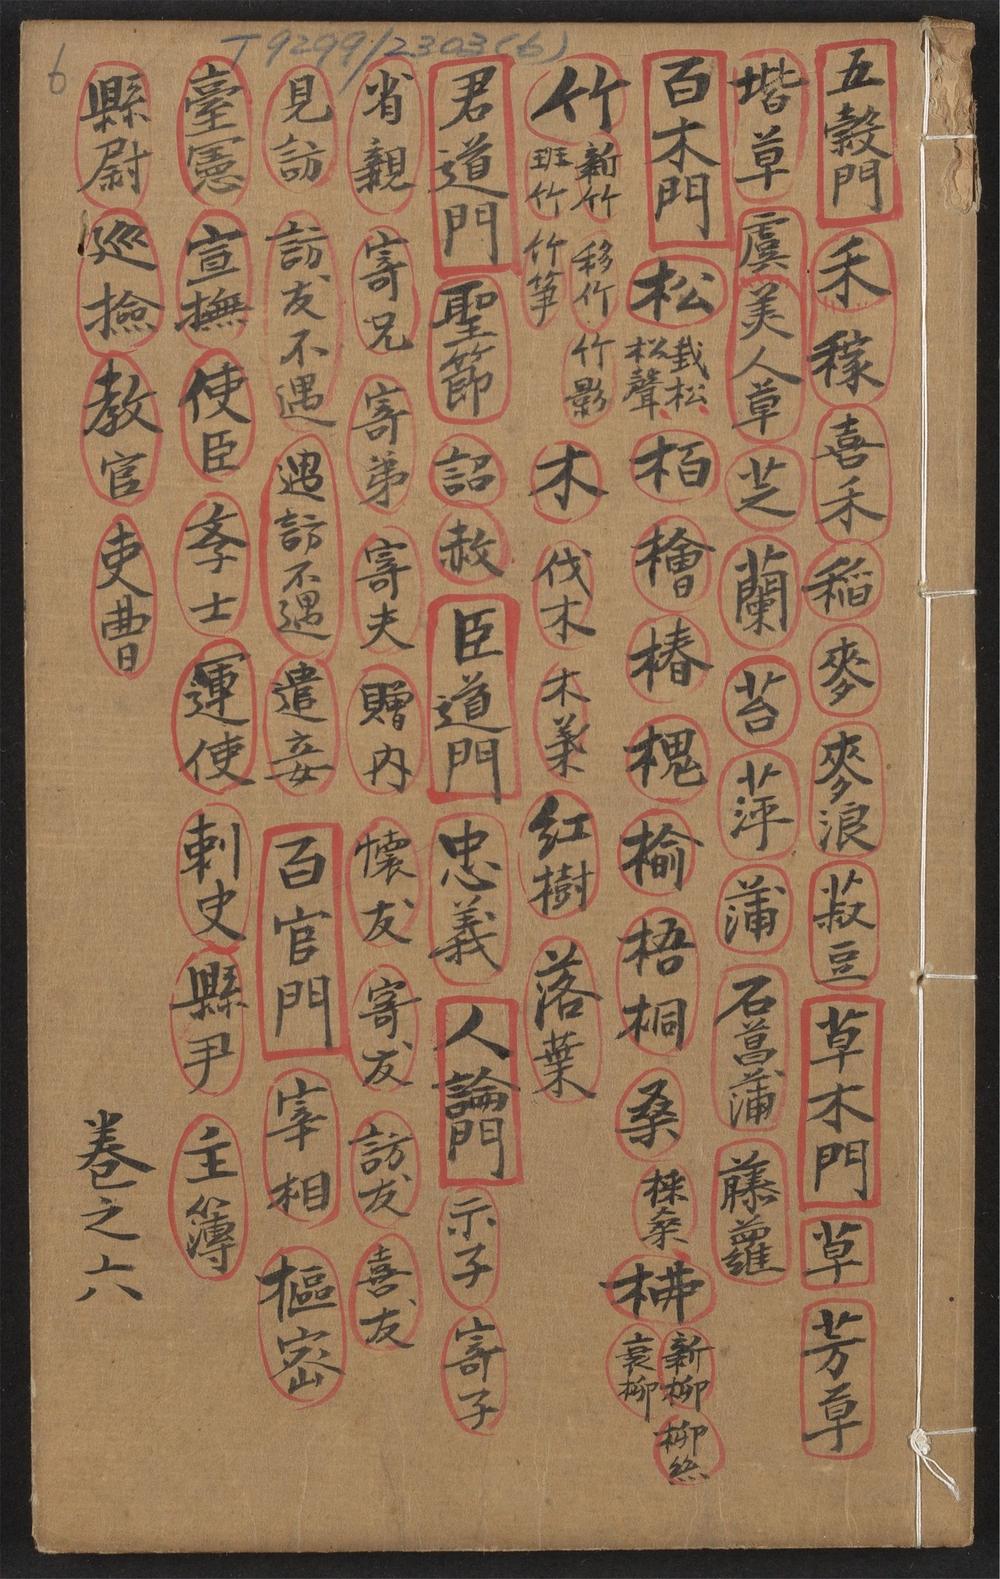 T 9299/2303(6)
6
五穀門 禾 稼 喜禾 稲 麥 麥浪 菽豆 草木門 草 芳草
堦草 虞美人草 芝 蘭 苔 萍 蒲 石菖蒲 藤蘿
百木門 松 栽松 松聲 栢 檜 椿 槐 榆 梧桐 桑 採桑 柳 新柳 柳絲 衰柳
竹 新竹 移竹 竹影 班竹 竹笋 木 伐木 木葉 紅樹 落葉
君道門 聖節 詔 赦 臣道門 忠義 人論門 示子 寄子
省親 寄兄 寄弟 寄夫 贈内 懷友 寄友 訪友 喜友
見訪 訪友不遇 遇訪不遇 遣妾 百官門 宰相 樞密
臺憲 宣撫 使臣 李士 運使 刺史 縣尹 主簿
縣尉 廵撿 教官 吏曹
卷之六